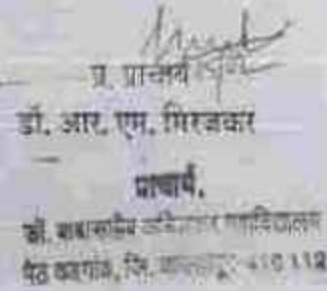 प्र. प्राचार्य
डॉ. आर. एम. मिरजकर
प्राचार्य.
डॉ. बाबासाहेब आंबेडकर महाविद्यालय
पेठ वडगांव, जि. कोल्हापूर 416112